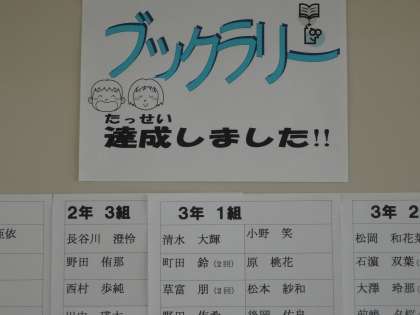 ブックラリー
たっせい
達成しました!!
2年 3組
長谷川 澄怜
野田 侑那
西村 歩純
3年 1組
清水 大輝
小野 笑
町田 鈴(2回)
原 桃花
草富 朋(2回)
松本 紗和
3年 2
松岡 和花菜
石濵 双葉
大澤 玲那